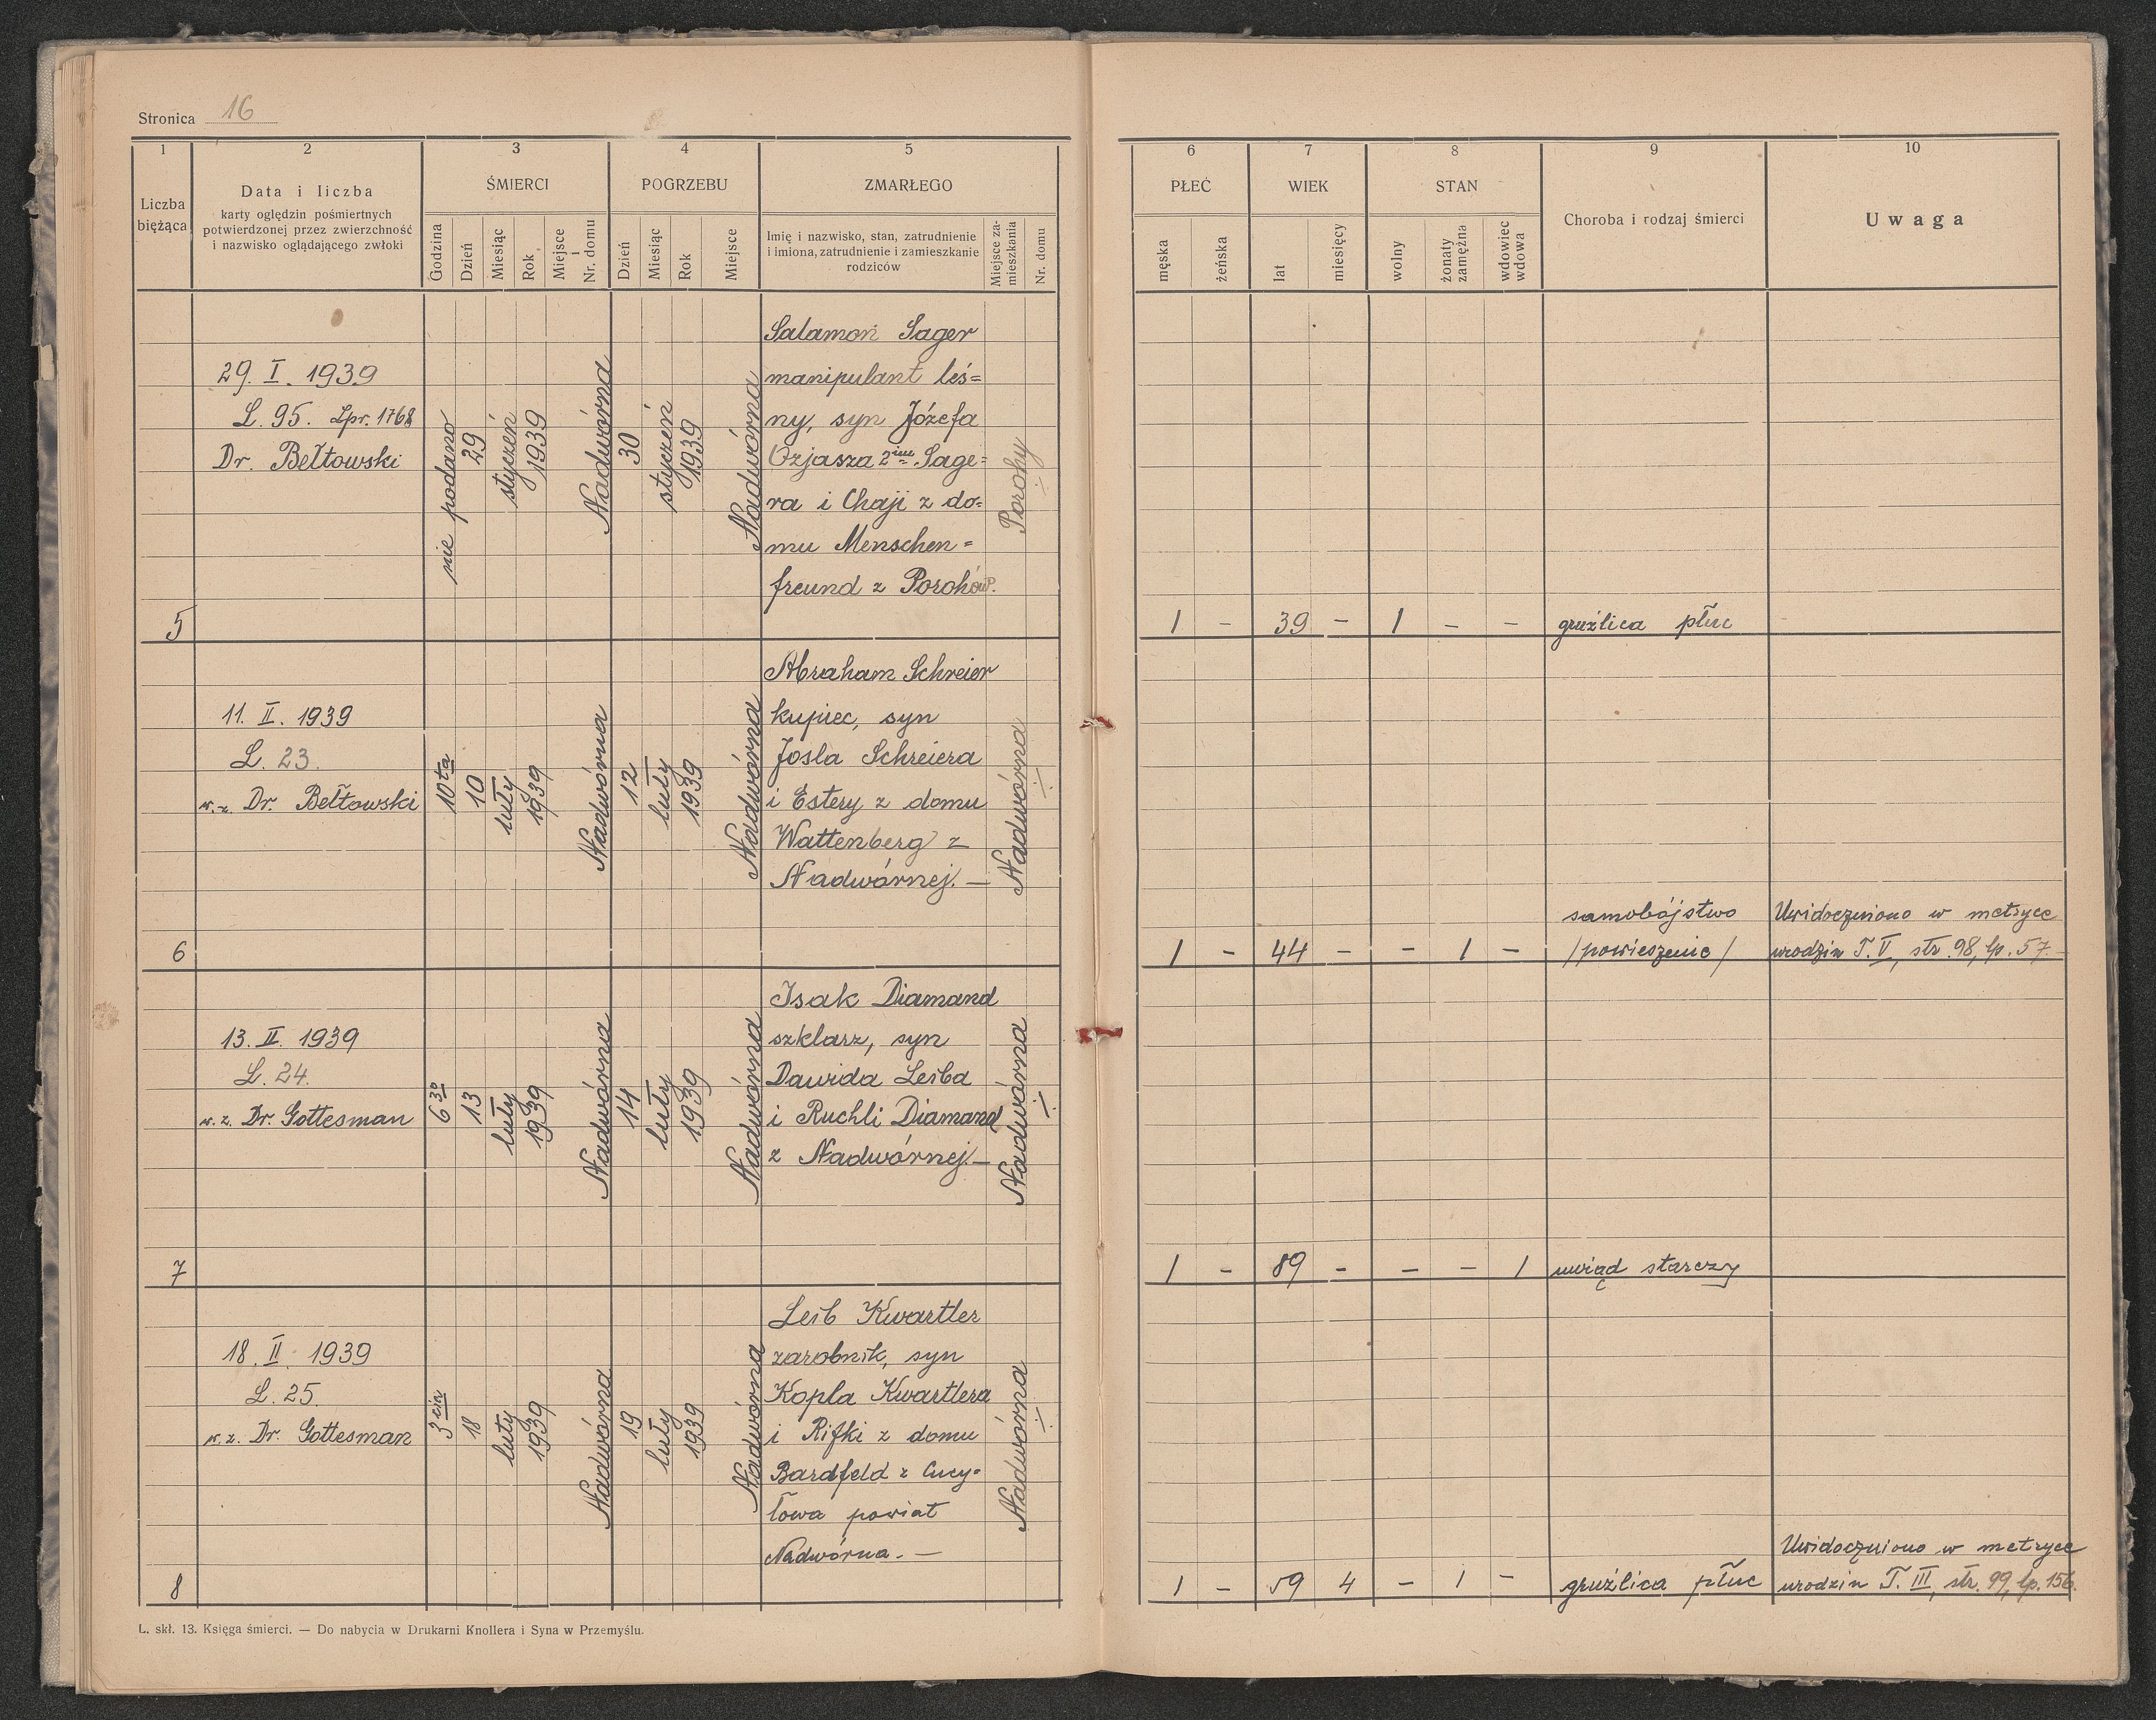 Stronica 16
1
2
3
4
5
6
7
8
9
10
Liczba
bieżąca
Data i liczba
karty oględzin pośmiertnych
potwierdzonej przez zwierzchność
i nazwisko oglądającego zwłoki
ŚMIERCI
Godzina
Dzień
Miesiąc
Rok
Miejsce
i
Nr. domu
POGRZEBU
Dzień
Miesiąc
Rok
Miejsce
ZMARŁEGO
Imię i nazwisko, stan, zatrudnienie
i imiona, zatrudnienie i zamieszkanie
rodziców
Miejsce za-
mieszkania
Nr. domu
PŁEĆ
męska
żeńska
WIEK
lat
miesięcy
STAN
wolny
żonaty
zamężna
wdowiec
wdowa
Choroba i rodzaj śmierci
Uwaga
5
29. I. 1939
L. 95. Lpr. 1768
Dr. Bełtowski
nie podano
29
styczeń
1939
Nadwórna
30
styczeń
1939
Nadwórna
Salamon Sager
manipulant leś=
ny, syn Józefa
Ozjasza 2im Sage=
ra i Chaji z do=
mu Menschen=
freund z Porohów.
Porohy
1 - 39 - 1 - - gruźlica płuc
6
11. II. 1939
L. 23.
w.z. Dr. Bełtowski
10ta
10
luty
1939
Nadwórna
12
luty
1939
Nadwórna
Abraham Schreier
kupiec, syn
Josla Schreiera
i Estery z domu
Wattenberg z
Nadwórnej. —
Nadwórna
samobójstwo
1 - 44 - - 1 - /powieszenie/
Uwidoczniono w metryce
urodzin T. V, str. 98, lp. 57.
7
13. II. 1939
L. 24.
w.z. Dr. Gottesman
6 30
13
luty
1939
Nadwórna
14
luty
1939
Nadwórna
Isak Diamand
szklarz, syn
Dawida Leiba
i Ruchli Diamand
z Nadwórnej. —
Nadwórna
1 - 89 - - - 1 uwiąd starczy
8
18. II. 1939
L. 25.
w.z. Dr. Gottesman
3cia
18
luty
1939
Nadwórna
19
luty
1939
Nadwórna
Leib Kwartler
zarobnik, syn
Kopla Kwartlera
i Rifki z domu
Bardfeld z Cucy=
łowa powiat
Nadwórna. —
Nadwórna
1 - 59 4 - 1 - gruźlica płuc
Uwidoczniono w metryce
urodzin T. III, str. 99, lp. 156.
L. skł. 13. Księga śmierci. — Do nabycia w Drukarni Knollera i Syna w Przemyślu.